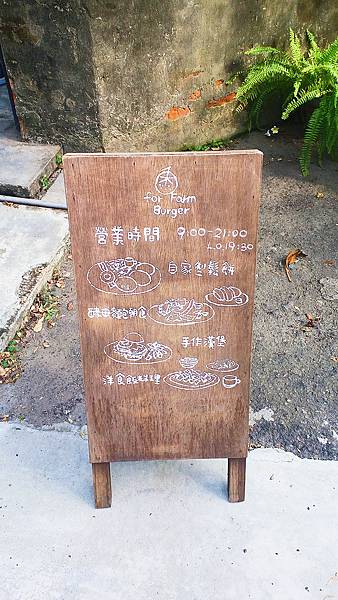 for Farm
Burger
營業時間 9:00-21:00
L.O.19:30
自家製鬆餅
酵母麵包朝食
手作漢堡
洋食飯料理